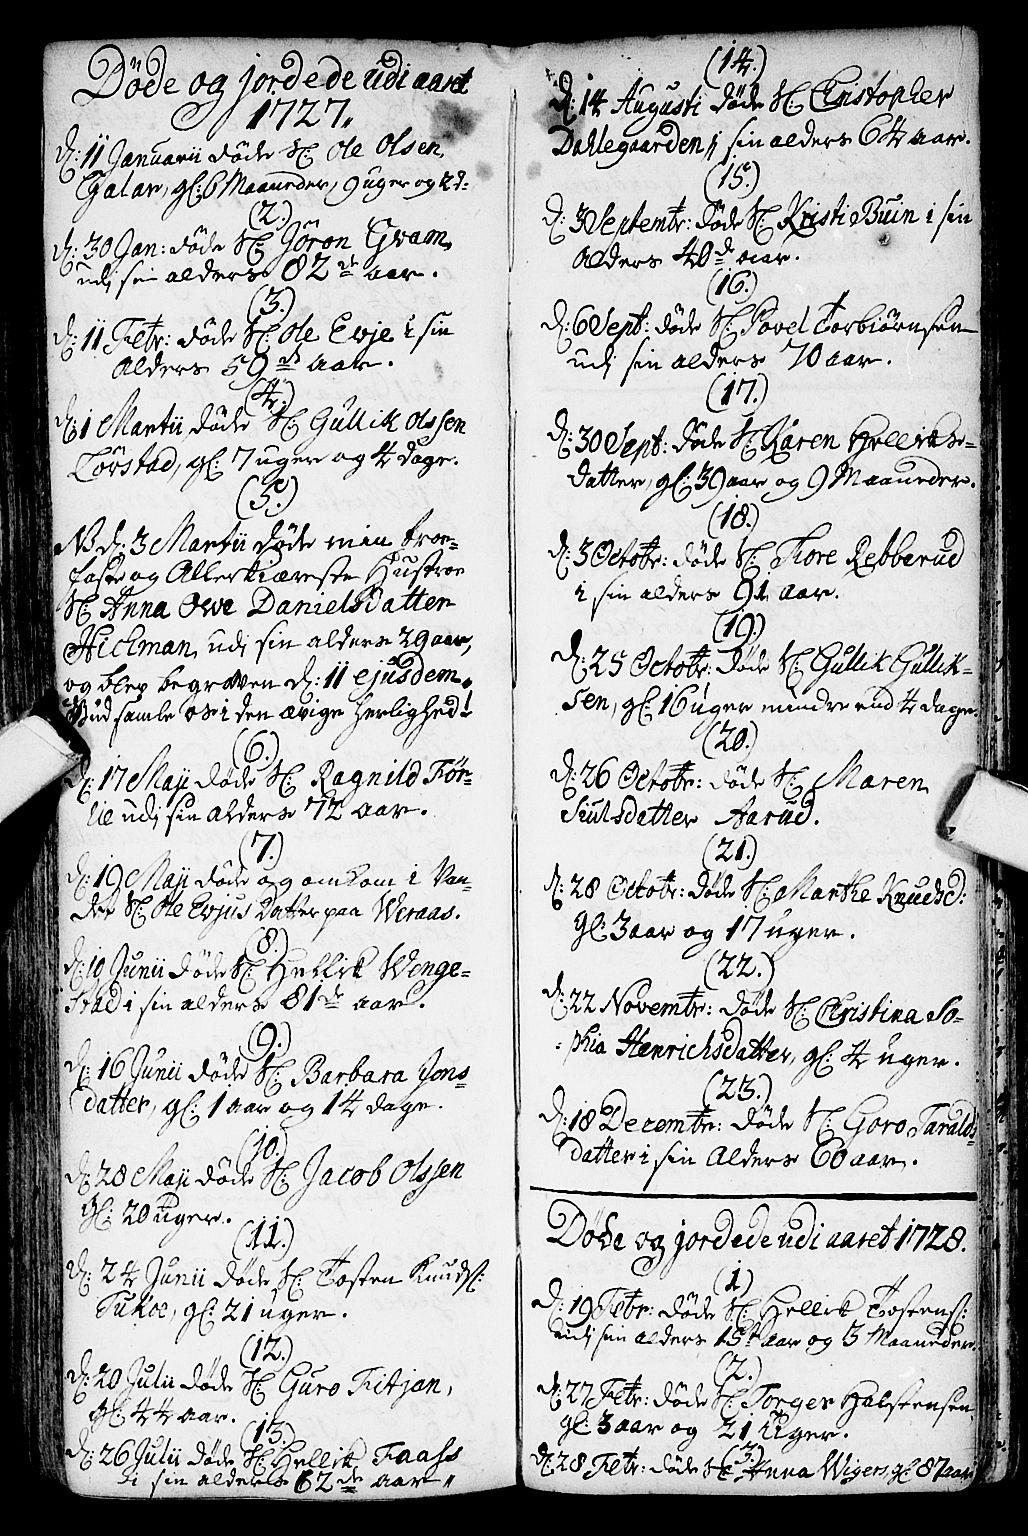 Døde og jordede udi aaret
1727.
d: 11 Januarii døde Sl: Ole Olsen
Galaa, gl: 6 Maaneder, 9 uger og 2 d:
(2.)
d: 30 Jan: døde Sl: Jöron Gvam,
udj sin alders 82 de aar.
(3.)
d: 11 Febr: døde Sl: Ole Evje i sin
Alders 59 de aar.
(4.)
d: 1 Martii døde Sl: Gullik Olssen
Törstad, gl: 7 uger og 4 dage.
(5.)
NB d. 3 Martii døde min troe-
faste og Allerkiæreste Hustroe
Sl: Anna Owe Danielsdatter
Hielman, udj sin alders 29 aar,
og blev begraven d: 11 ejusdem.
Gud samle os i den ævige herlighed!
(6.)
d: 17 Maji døde Sl: Ragnild För-
lie udj sin alders 72 aar.
(7.)
d: 19 Maji døde og omkom i Van-
det Sl: Ole Evjus Datter paa Weraas.
(8.)
d: 10 Junii døde Sl: Hellik Wenge-
stad i sin alders 81 de aar.
(9.)
d: 16 Junii døde Sl: Barbara Jons-
datter, gl: 1 aar og 14 dage.
(10.)
d: 28 Maji døde Sl: Jacob Olssen
gl: 20 uger.
(11.)
d: 24 Junii døde Sl: Tosten Knuds:
Fukoe, gl: 21 uger.
(12.)
d: 20 Julii døde Sl: Guro Fitjan,
gl: 44 aar.
(13.)
d: 26 Julii døde Sl: Hellik Faass
i sin alders 62 de aar,,
(14.)
d: 14 Augusti døde Sl: Christopher
Dahlegaarden,, i sin alders 64 aar.
(15.)
d: 3 Septembr: døde Sl: Kristi Buin i sin
alders 40 de aar.
(16.)
d: 6 Sept: døde Sl: Povel Torbiørnsen
udj sin alders 70 aar.
(17.)
d: 30 Sept: døde Sl: Karen Helliks-
datter, gl: 39 aar og 9 Maaneder.
(18.)
d: 3 Octobr: døde Sl: Tore Rebberud
i sin alders 91 aar.
(19.)
d: 25 Octobr: døde Sl: Gullik Gullik-
sen, gl: 16 uger mindre end 4 dage.
(20.)
d: 26 Octobr: døde Sl: Maren
Siulsdatter Aarud.
(21.)
d: 28 Octobr: døde Sl: Marthe Knudsd:
gl: 3 aar og 17 uger.
(22.)
d: 22 Novembr: døde Sl: Christina So-
phia Henrichsdatter, gl: 4 uger.
(23.)
d: 18 Decembr: døde Sl: Goro Taralds-
datter i sin Alders 60 aar.
Døde og jordede udi aaret 1728.
(1)
d: 19 Febr: døde Sl: Hellik Tostens:
udj sin alders 15 de aar og 3 Maaneder.
(2.)
d: 27 Febr: døde Sl: Torger Halstensen
gl: 3 aar og 21 uger.
(3.)
d: 28 Febr: døde Sl: Anna Wigers, gl: 87 aar